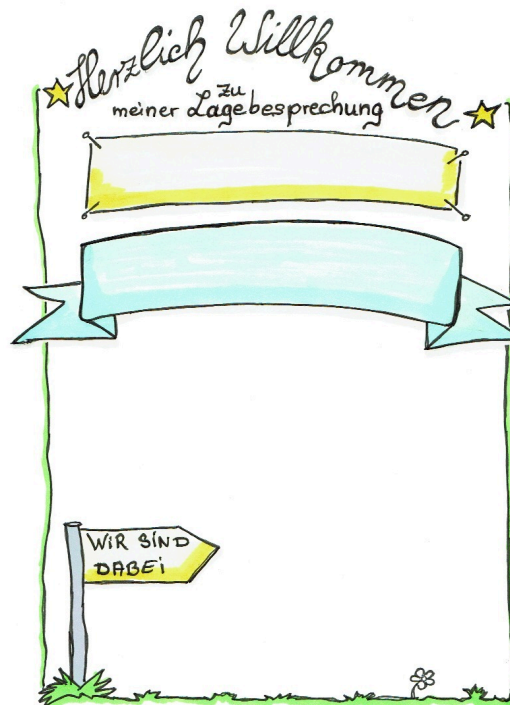 Herzlich Willkommen
zu
meiner Lagebesprechung
WIR SIND
DABEI